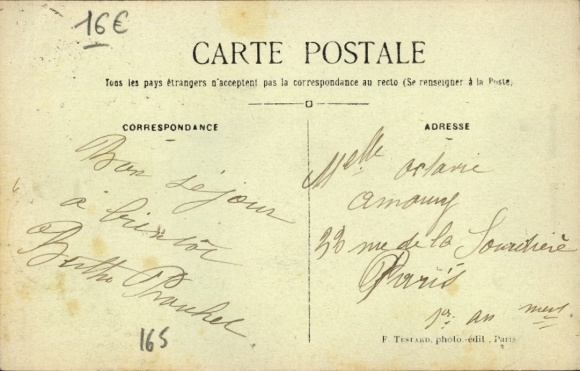 16€
CARTE POSTALE
Tous les pays étrangers n'acceptent pas la correspondance au recto (Se renseigner à la Poste)
CORRESPONDANCE
ADRESSE
Bon séjour
à bientôt
Berthe
165
Melle Octavie
Amaury
22 rue de la Sourdière
Paris
1er au
F. TESTARD, photo.-édit., Paris